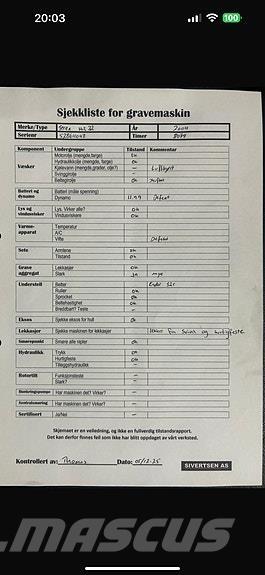 20:03
100
Sjekkliste for gravemaskin
Merke/Type År 2004
Serienr Timer
Komponent Undergruppe Tilstand Kommentar
Væsker Motorolje (mengde,farge) ok
Hydraulikkolje (mengde, farge) ok
Kjølevann (mengde,grader, olje?) -
Svinggirolje -
Beltegirolje ok
Batteri og dynamo Batteri (måle spenning)
Dynamo 11.99 Defekt
Lys og vindusvisker Lys. Virker alle? ok
Vindusviskere ok
Varme-apparat Temperatur
A/C
Vifte Defekt
Sete Armlene ok
Tilstand ok
Grave aggregat Lekkasjer ok
Slark Ja mye
Understell Belter
Ruller ok
Sprocket ok
Beltehastighet ok
Breddbart? Teste -
Eksos Sjekke eksos for hull ok
Lekkasjer Sjekke maskinen for lekkasjer fra Sving og hurtigfeste
Smørepunkt Smøre alle nipler ok
Hydraulikk Trykk ok
Hurtigfeste ok
Tilleggshydraulikk -
Rotortilt Funksjonsteste -
Slark? -
Har maskinen det? Virker? -
Har maskinen det? Virker? -
Sertifisert Ja/Nei -
Skjemaet er en veiledning, og ikke en fullverdig tilstandsrapport.
Det kan derfor finnes feil som ikke har blitt oppdaget av vårt verksted.
Kontrollert av: Thomas Dato: 05/12-25 SIVERTSEN AS
MASCUS